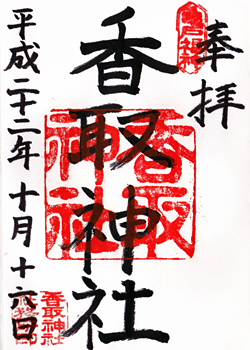 奉拝
香取神社
香取
神社
平成二十二年十月十六日
香取神社